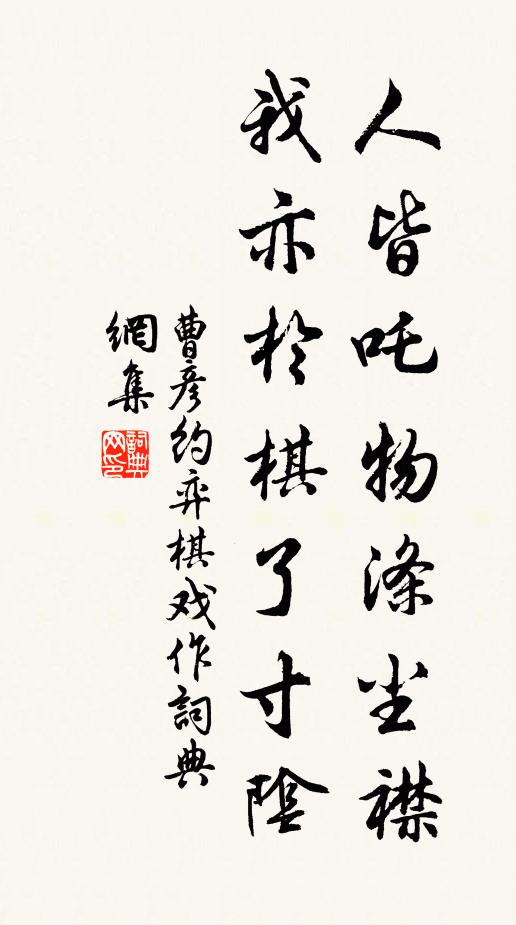 人皆吒物滌尘襟
我亦於棋了寸陰
曹彦约弈棋戏作詞典
網集
詞典网印